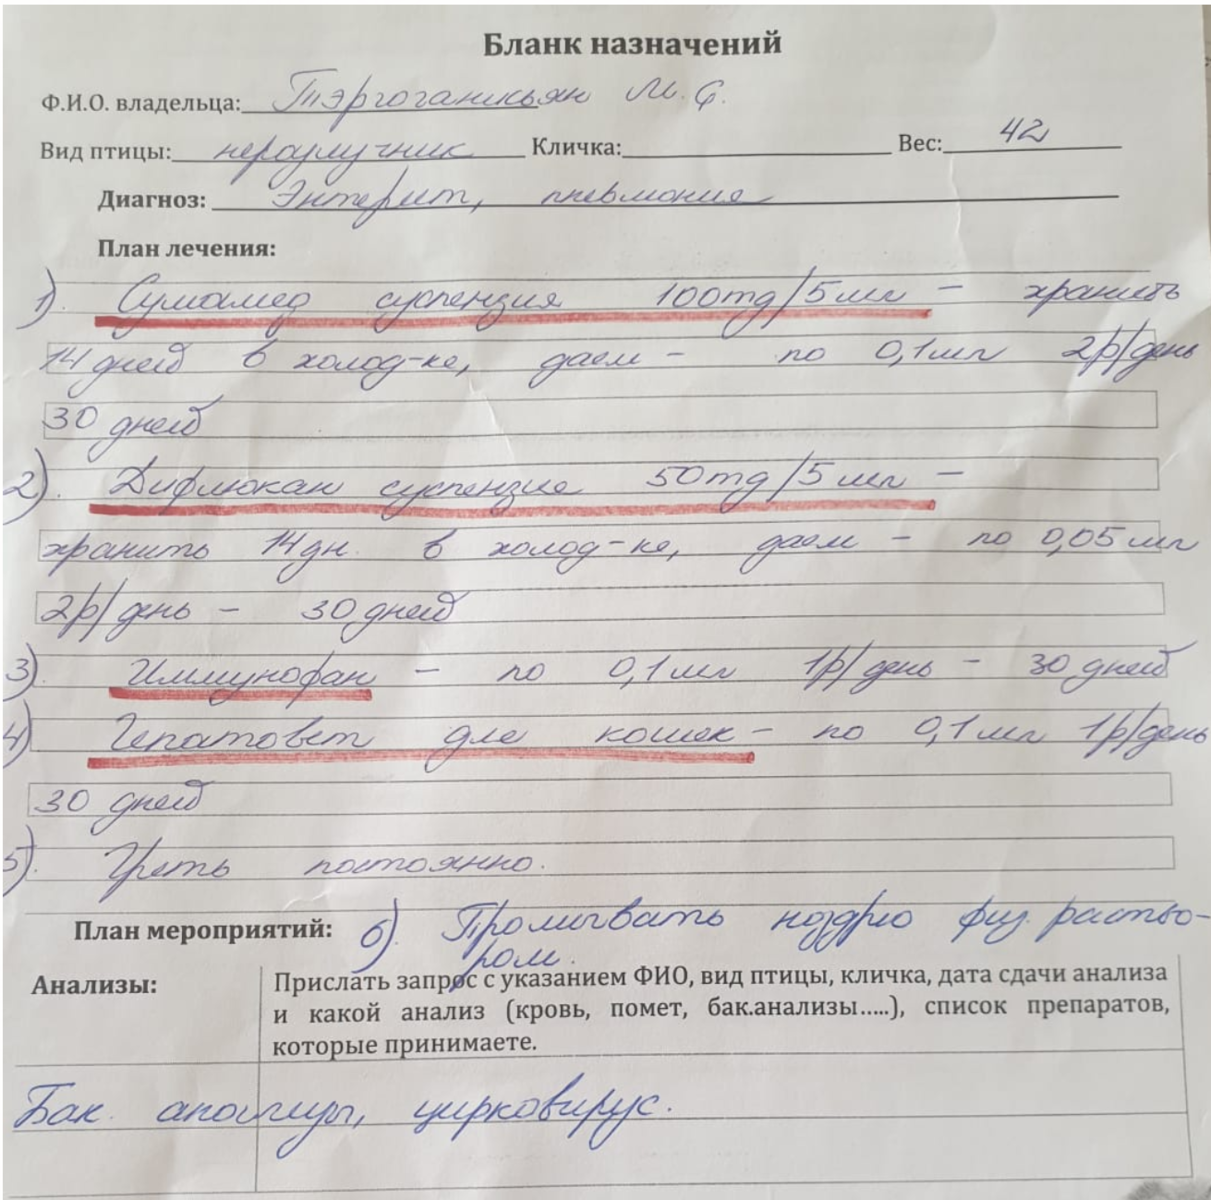 Бланк назначений
Ф.И.О. владельца: М. С.
Вид птицы: неразлучник Кличка: Вес: 42
Диагноз: Энтерит, пневмония
План лечения:
1). Сумамед суспензия 100mg/5мл – хранить
14 дней в холод-ке, даем – по 0,1мл 2р/день
30 дней
2). Дифлюкан суспензия 50mg/5мл –
хранить 14дн. в холод-ке, даем – по 0,05мл
2р/день – 30 дней
3). Иммунофан – по 0,1мл 1р/день – 30 дней
4). Гепатовет для кошек – по 0,1мл 1р/день
30 дней
5). Греть постоянно.
План мероприятий: 6). Промывать ноздрю физ. раство-
ром.
Анализы: Прислать запрос с указанием ФИО, вид птицы, кличка, дата сдачи анализа
и какой анализ (кровь, помет, бак.анализы.....), список препаратов,
которые принимаете.
Бак. цирковирус.